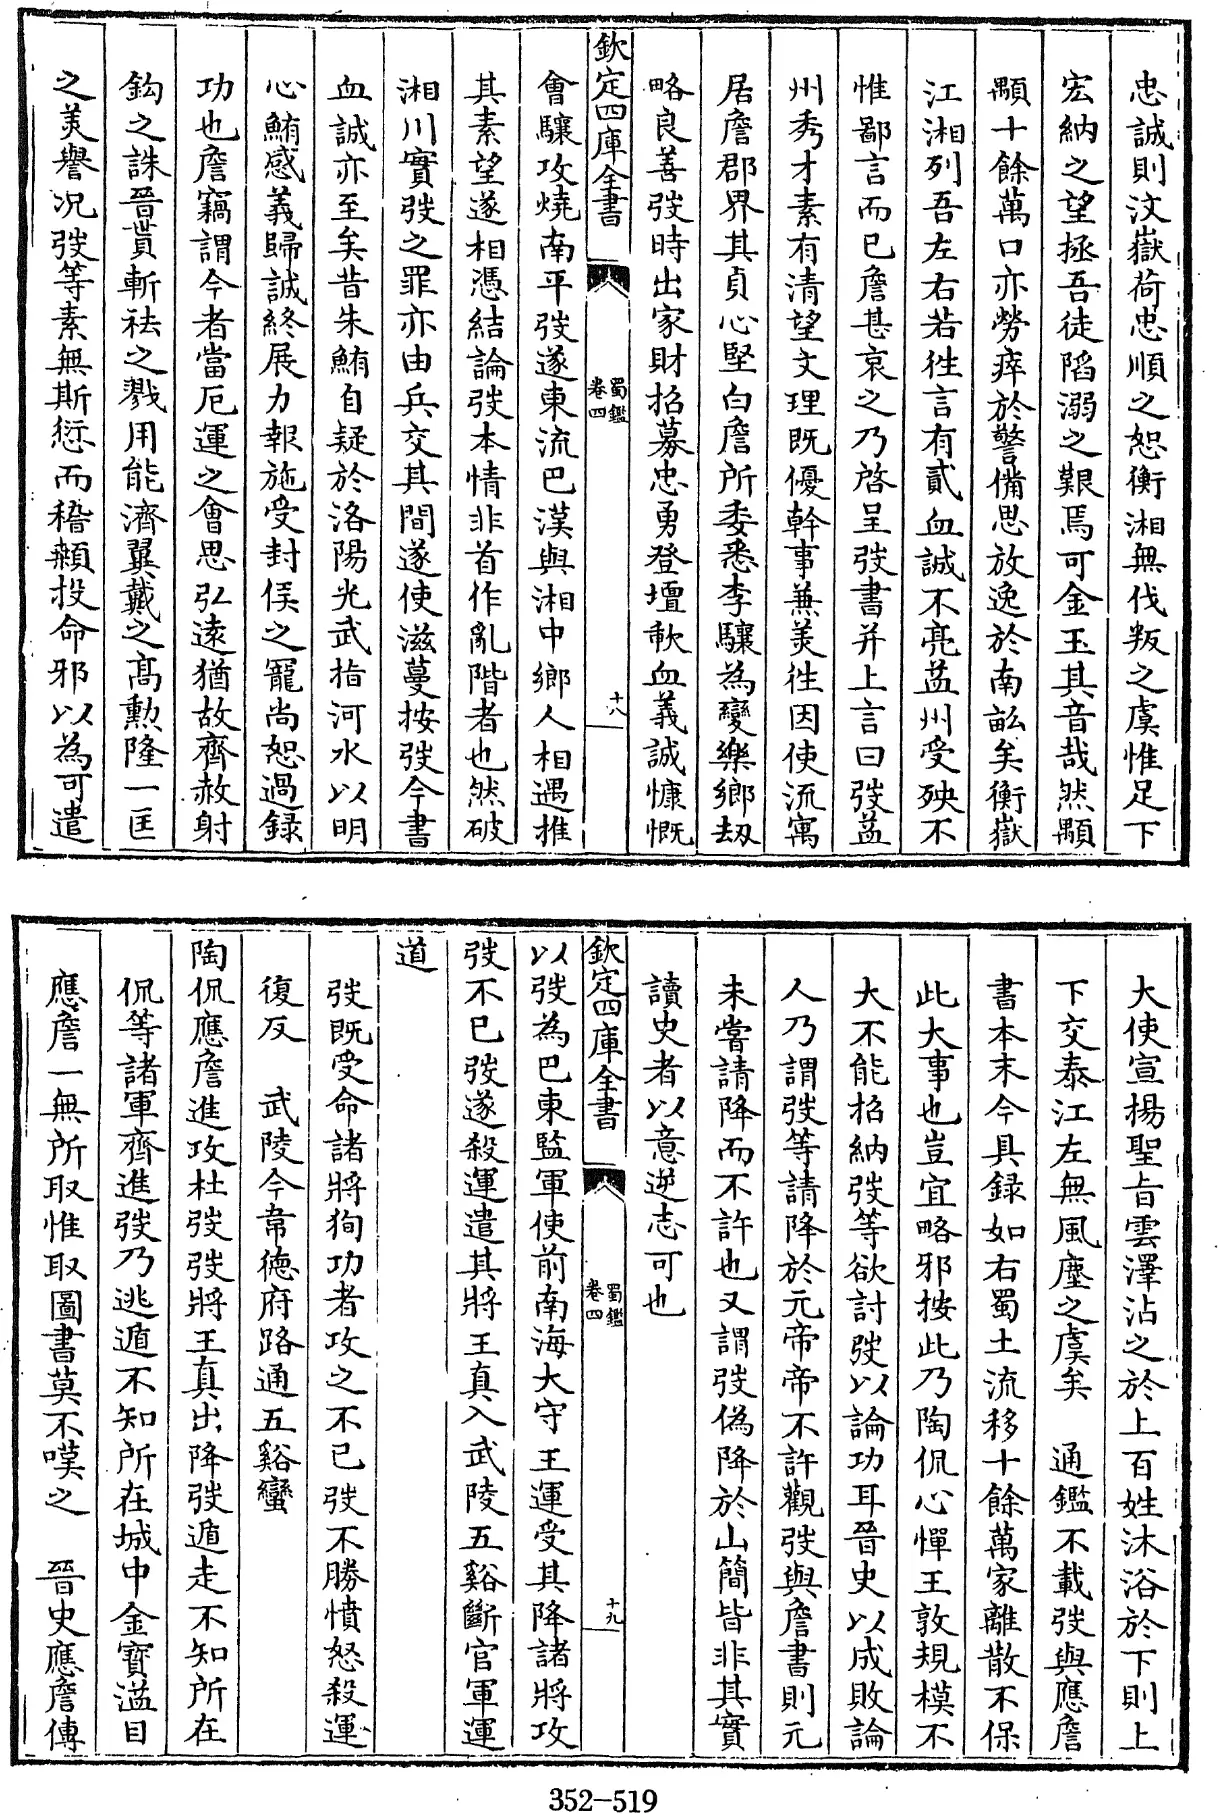 忠誠則汶嶽荷忠順之恕衡湘無伐叛之虞惟足下
宏納之望拯吾徒陷溺之艱焉可金玉其音哉然顒
顒十餘萬口亦勞瘁於警備思放逸於南畝矣衡嶽
江湘列吾左右若徃言有貳血誠不亮益州受殃不
惟鄙言而已詹甚哀之乃啓呈弢書并上言曰弢益
州秀才素有清望文理既優幹事兼美徃因使流寓
居詹郡界其貞心堅白詹所委悉李驤為變樂鄉刼
略良善弢時出家財招募忠勇登壇歃血義誠慷慨
欽定四庫全書
蜀鑑
卷四
十八
會驤攻燒南平弢遂東流巴漢與湘中鄉人相遇推
其素望遂相憑結論弢本情非首作亂階者也然破
湘川實弢之罪亦由兵交其間遂使滋蔓按弢今書
血誠亦至矣昔朱鮪自疑於洛陽光武指河水以明
心鮪感義歸誠終展力報施受封侯之寵尚恕過録
功也詹竊謂今者當厄運之會思弘逺猶故齊赦射
鈎之誅晉貰斬袪之戮用能濟翼戴之髙勲隆一匡
之美譽况弢等素無斯愆而稽顙投命邪以為可遣
大使宣揚聖旨雲澤沾之於上百姓沐浴於下則上
下交泰江左無風塵之虞矣 通鑑不載弢與應詹
書本末今具録如右蜀土流移十餘萬家離散不保
此大事也豈宜略邪按此乃陶侃心憚王敦規模不
大不能招納弢等欲討弢以論功耳晉史以成敗論
人乃謂弢等請降於元帝帝不許觀弢與詹書則元
未嘗請降而不許也又謂弢偽降於山簡皆非其實
讀史者以意逆志可也
欽定四庫全書
蜀鑑
卷四
十九
以弢為巴東監軍使前南海大守王運受其降諸將攻
弢不已弢遂殺運遣其將王真入武陵五谿斷官軍運
道
弢既受命諸將狥功者攻之不已弢不勝憤怒殺運
復反 武陵今常德府路通五谿蠻
陶侃應詹進攻杜弢弢將王真出降弢遁走不知所在
侃等諸軍齊進弢乃逃遁不知所在城中金寳溢目
應詹一無所取惟取圖書莫不嘆之 晉史應詹傳
352-519